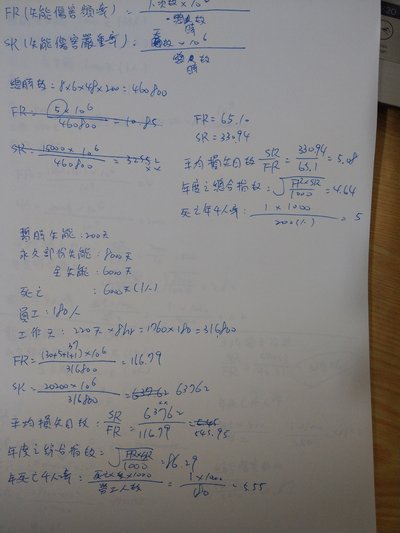 FR(失能傷害頻率) = 次數×10⁶ / 總時數
SR(失能傷害嚴重率) = 數×10⁶ / 總時數
總時數: 8×6×48×200 = 460800
FR = 5×10⁶ / 460800 = 10.85
FR = 65.10
SR = 330.94
SR = 15000×10⁶ / 460800
平均損失日數 SR/FR = 330.94/65.1 = 5.08
年度之綜合指數: √(FR×SR/1000) = 4.64
死亡年千人率: 1×1000 / 200(人) = 5
暫時失能: 200天
永久部份失能: 8000天
全失能: 6000天
死亡: 6000天(1人)
員工: 180人
工作天: 220天×8hr = 1760×180 = 316800
FR = (30+5+1+1)×10⁶ / 316800 = 116.79
37
SR = 20200×10⁶ / 316800 = 63762 63762
平均損失日數: SR/FR = 63762/116.79 = 545.95
年度之綜合指數 = √(FR×SR/1000) = 86.29
年死亡千人率: ×1000 / 勞工人數 = 1×1000 / 180 = 5.55